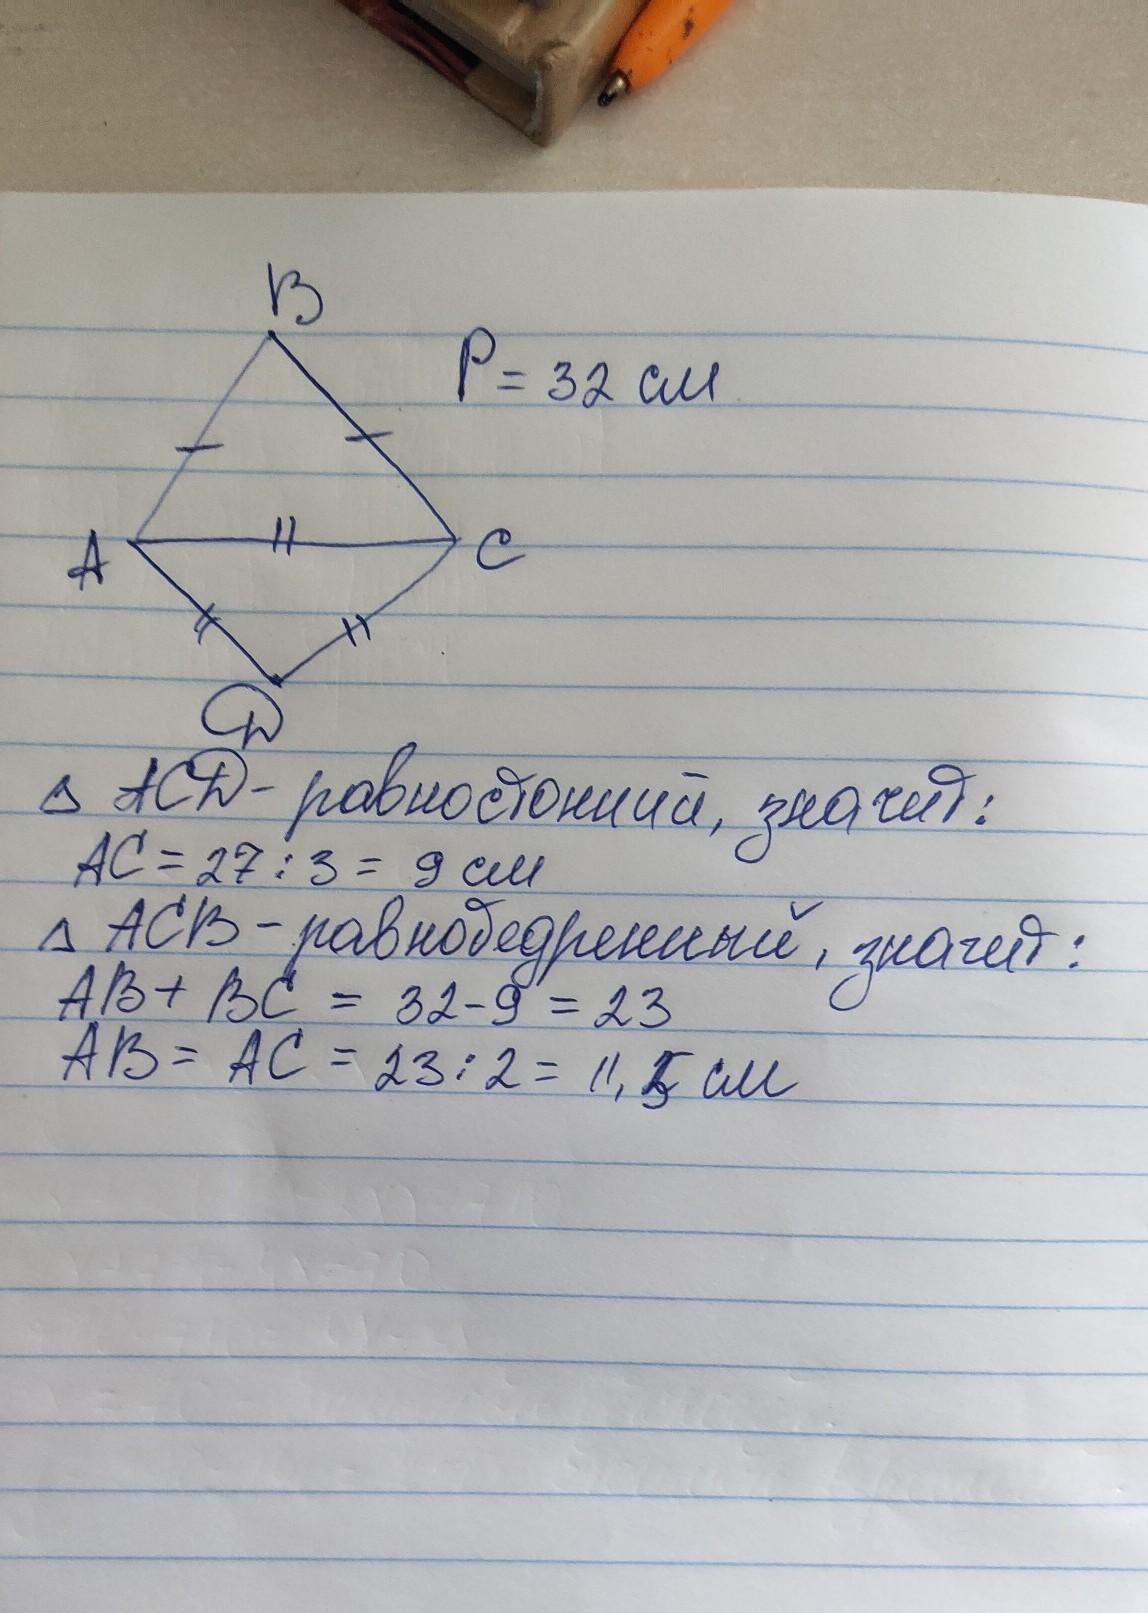 B
P = 32 см
A
C
D
Δ ACD - равностонний, значит:
AC = 27 : 3 = 9 см
Δ ACB - равнобедренный, значит:
AB + BC = 32 - 9 = 23
AB = AC = 23 : 2 = 11,5 см